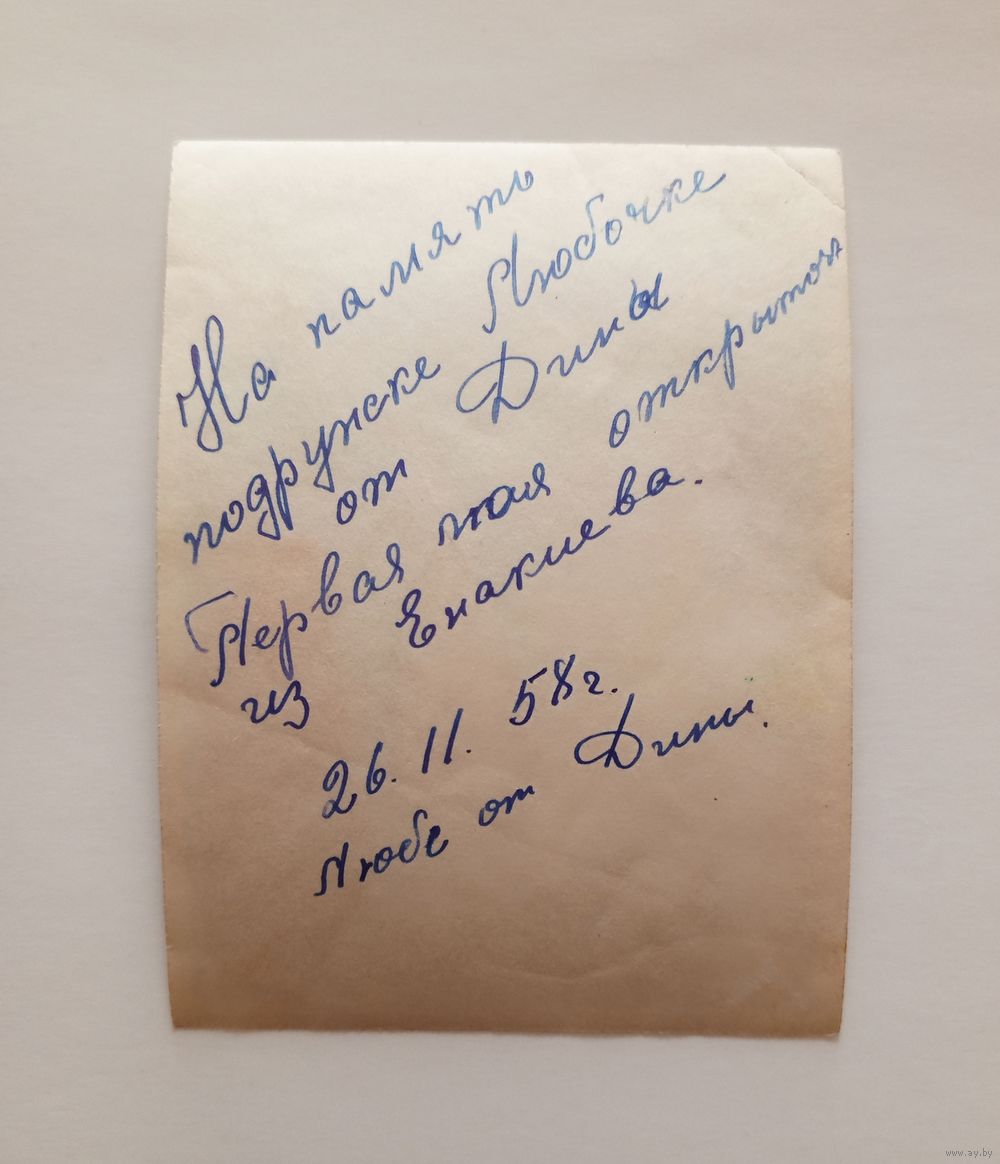 На память
подружке Любочке
от Дины
Первая моя открыточ
из Енакиева.
26.11. 58 г.
Любе от Дины.
www.ay.by